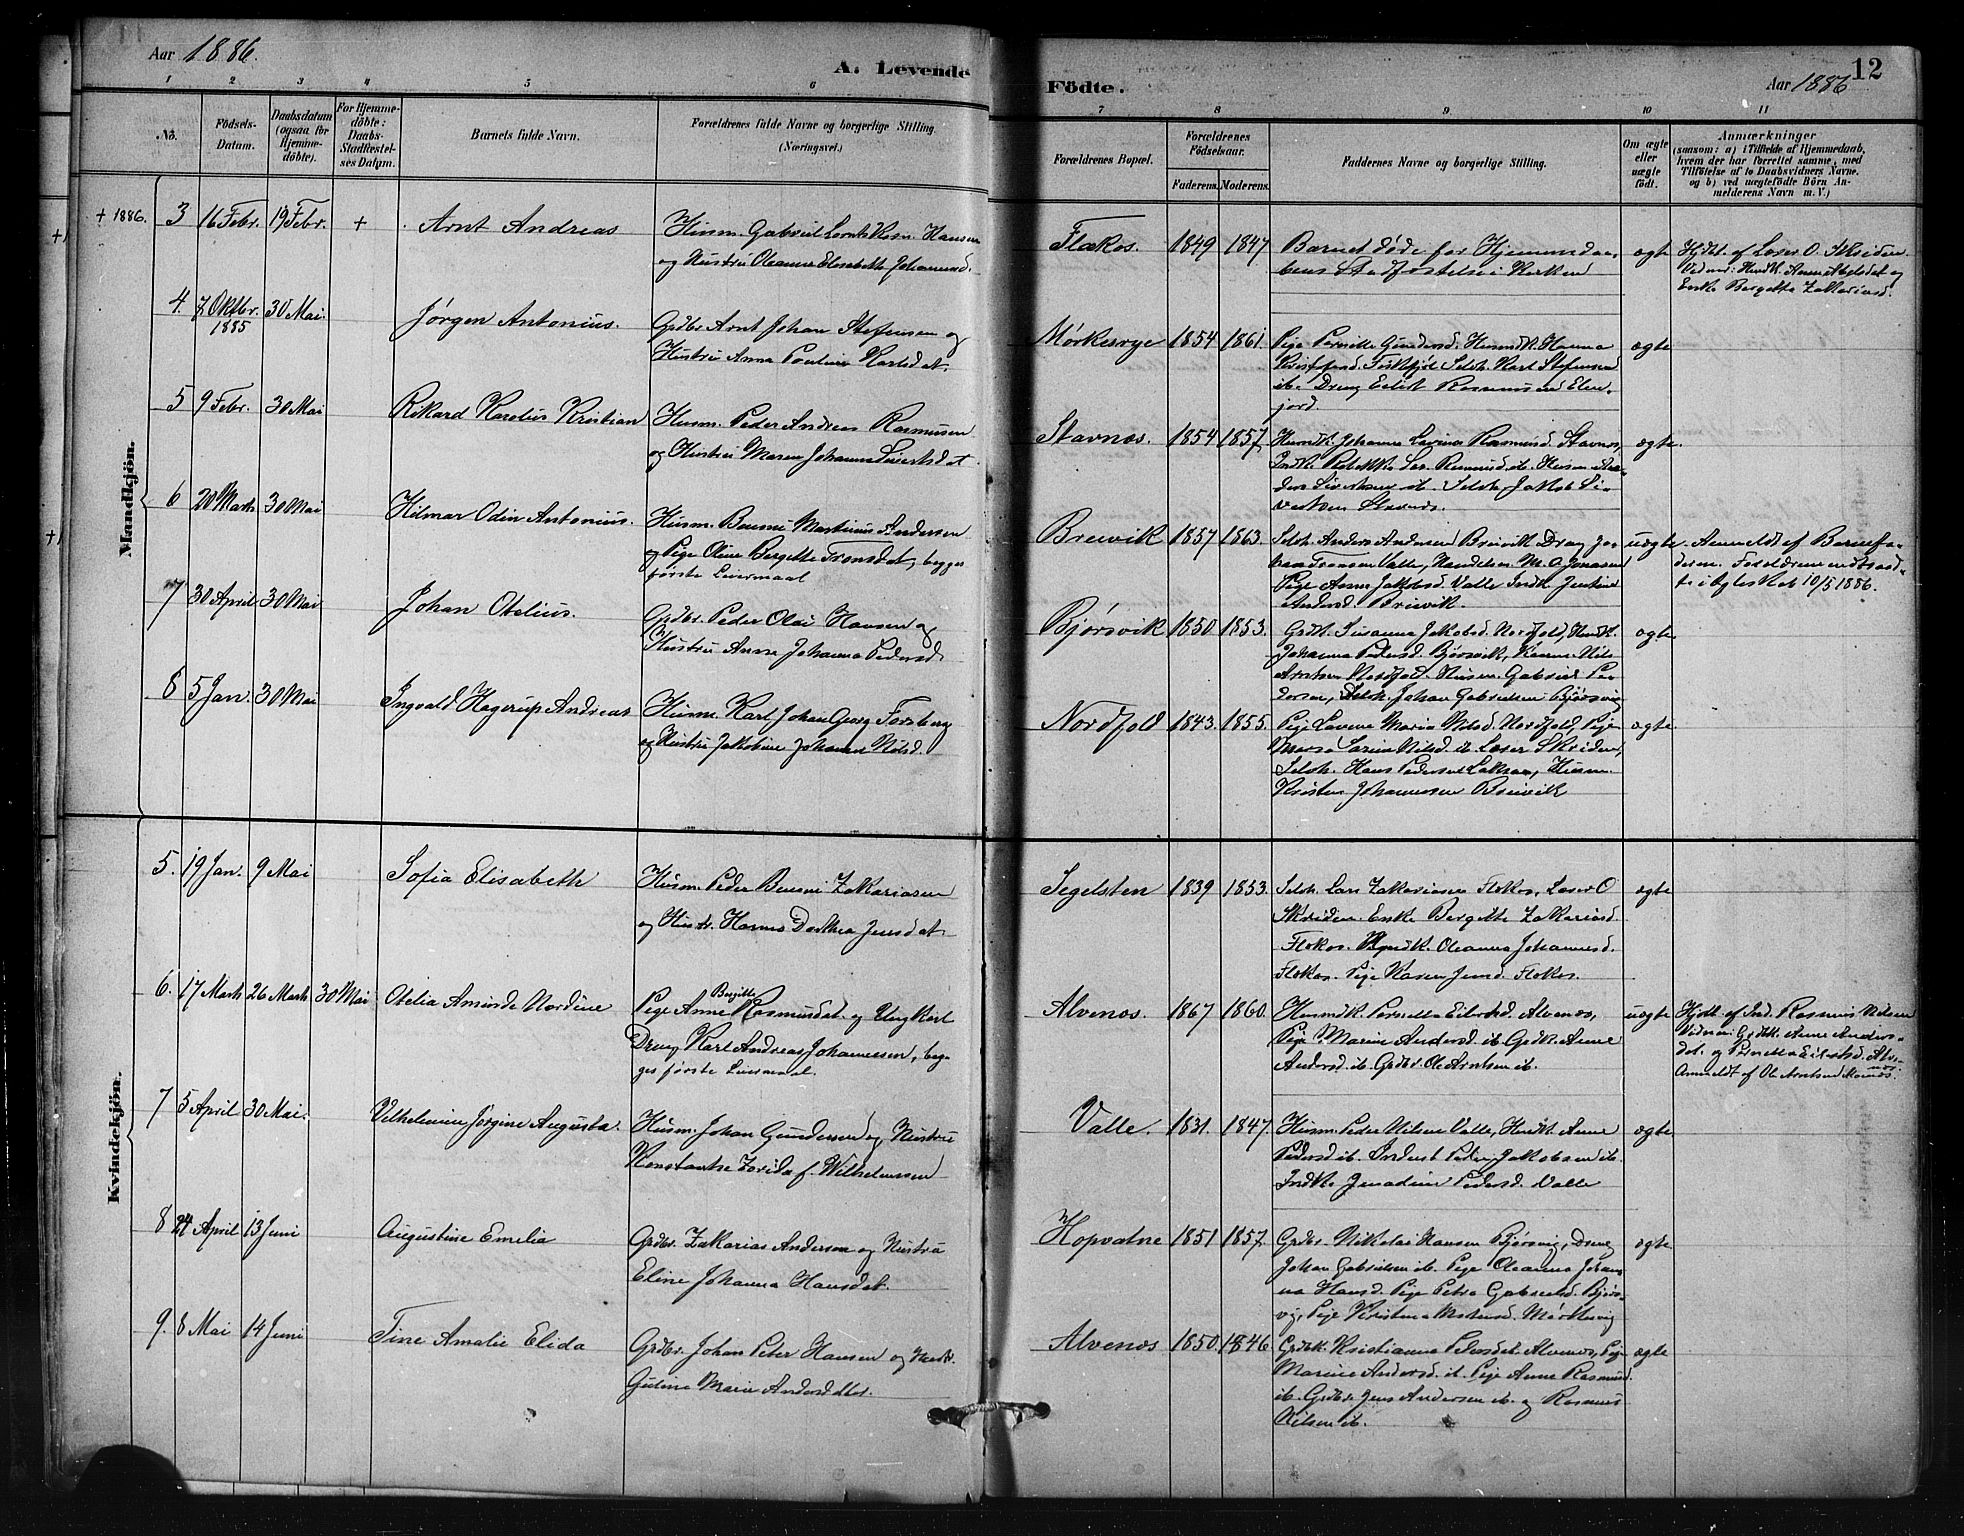 Aar 1886.
A. Levende
Födte.
Aar 1886
12
1 2 3 4 5 6 7 8 9 10 11
No.
Födsels-
Datum.
Daabsdatum
(ogsaa for
Hjemme-
döbte).
For Hjemme-
döbte:
Daabs-
Stadfæstel-
ses Datum.
Barnets fulde Navn.
Forældrenes fulde Navne og borgerlige Stilling.
(Næringsvei.)
Forældrenes Bopæl.
Forældrenes
Födselsaar.
Faderens. Moderens.
Faddernes Navne og borgerlige Stilling.
Om ægte
eller
uægte
födt.
Anmærkninger
(saasom: a) i Tilfælde af Hjemmedaab,
hvem der har forrettet samme, med
Tilföielse af to Daabsvidners Navne,
og b) ved uægtefödte Börn An-
melderens Navn m. V.)
Mandkjön.
+ 1886. 3 16 Febr. 19 Febr. + Arnt Andreas
Husm. Gabriel Hansen
og Hustru Oleanna Elisabeth Johannesd.
Flækos. 1849 1847
Barnet døde før Hjemmedaa-
bens Stadfæstelse i Kirken
ægte
Hjdt. af Læser O. Skriden.
Enke Bergitta Zakariasd.
4. 7 Oktbr. 1885 30 Mai. Jørgen Antonius.
Grdbr. Arnt Johan Stefensen og
Hustru Anna Pauline Karlsdat.
Mørkesvye 1854 1861.
Pige Pernille Gundersd. Husmdk. Hanna
Selvh. Karl Stefensen
ib. Dreng Eilert Rasmussen Elen-
jord.
ægte
5 9 Febr. 30 Mai Rikard Karelius Kristian
Husm. Peder Andreas Rasmusen
og Hustru Maren Johanna Sivertsdat.
Stavnes. 1854 1857.
Husmdk. Johanna Lavina Rasmusd. Stavnes,
ders Sivertsen ib. Selvh. Jakob Si-
vertsen Stavnes.
ægte.
6 20 Marts 30 Mai Hilmar Odin Antonius.
Husm. Benoni Martinus Andersen
og Pige Oline Bergitte Tronsdat, begges
første Leiermaal
Breivik 1857 1863.
Selvh. Anders Andersen Breivik Dreng Jo-
han Tronsen Valle, Handelsm. M. O. Jenssen
Pige Anna Jakobsd. Valle Indk. Jentine
Andersd. Breivik.
uægte.
Anmeldt af Barnefa-
deren. Forældrene indtraad-
te i Ægteskab 10/5 1886.
7 30 April 30 Mai Johan Otelius.
Grdbr. Peder Olai Hansen og
Hustru Anne Johanna Pedersd.
Bjørsvik 1850 1853.
Grdk. Susanna Jakobsd. Nordfjold, Husmdk.
Johanna Pedersd. Bjørsvik, Nils
Arntsen Nordfjold. Husm. Gabriel Pe-
dersen, Selvh. Johan Gabrielsen Bjørsvig
ægte.
8 5 Jan. 30 Mai Ingvald Hagerup Andreas
Husm. Karl Johan Georg Forsberg
og Hustru Jakobine Johanna Nilsd.
Nordfjold 1843. 1855.
Pige Lavina Maria Nilsd. Nordfjold, Pige
Sarine Nilsd. ib. Læser Skriden,
Selvh. Hans Pedersen Laksaa, Husm.
Kristen Johannessen Breivik
ægte
Kvindekjön.
5. 19 Jan. 9 Mai Sofia Elisabeth
Husm. Peder Benoni Zakariasen
og Hustr. Hanna Dorthea Jensdat.
Segelsten 1839 1853.
Selvh. Lars Zakariasen Flokos, Læser O
Skriden. Enke Bergitte Zakariasd.
Flokos. Oleanna Johannesd.
Flokos. Pige Karen Jensd. Flokos.
ægte
6. 17 Marts 26 Marts 30 Mai Otelia Aminde Nordine
Pige Anne Bergitte Rasmusdat. og Ungkarl
Dreng Karl Andreas Johannessen, beg-
ges første Leiermaal.
Alvenos. 1867 1860.
Husmdk. Pernella Eilertsd. Alvenos,
Pige Marine Andersd. ib. Grdk. Anne
Andersd. ib. Grdbr. Ole Arntsen ib.
uægte
Hjdt. af Ind. Rasmus Nilsen
Vidner: Grdk. Anne Anders-
dat. og Pernella Eilertsd. Alve-
nos.
Anmeldt af Ole Arntsen Alvenos.
7 5 April 30 Mai. Vilhelmine Jørgine Augusta.
Husm. Johan Gundersen og Hustru
Konstantse Zerida f. Wilhelmsen
Valle. 1831. 1847.
Husm. Peder Nilsen Valle, Husmdk. Anne
Pedersd. ib. Inderst Peder Jakobsen ib.
Indk. Jenadine Pedersd. Valle
ægte.
8 24 April 13 Juni Augustine Emelia
Grdbr. Zakarias Andersen og Hustru
Eline Johanna Hansdat.
Hopvatne 1851 1857.
Grdbr. Nikolai Hansen Bjørsvig, Dreng
Johan Gabrielsen ib. Pige Oleanna Johan-
na Hansd. Pige Petra Gabrielsd. Bjørs-
vig, Pige Kristina Mørkevig
ægte
9. 8 Mai 14 Juni Tine Amalie Elida
Grdbr. Johan Peter Hansen og Hustr.
Guline Marie Andersdtr.
Alvenos 1850. 1846
Grdbk. Kristianna Pedersdat. Alvenos, Pige
Marine Andersd. ib. Pige Anne Rasmusd.
ib. Grdbr. Jens Andersen ib. og Rasmus
Nilsen ib.
ægte